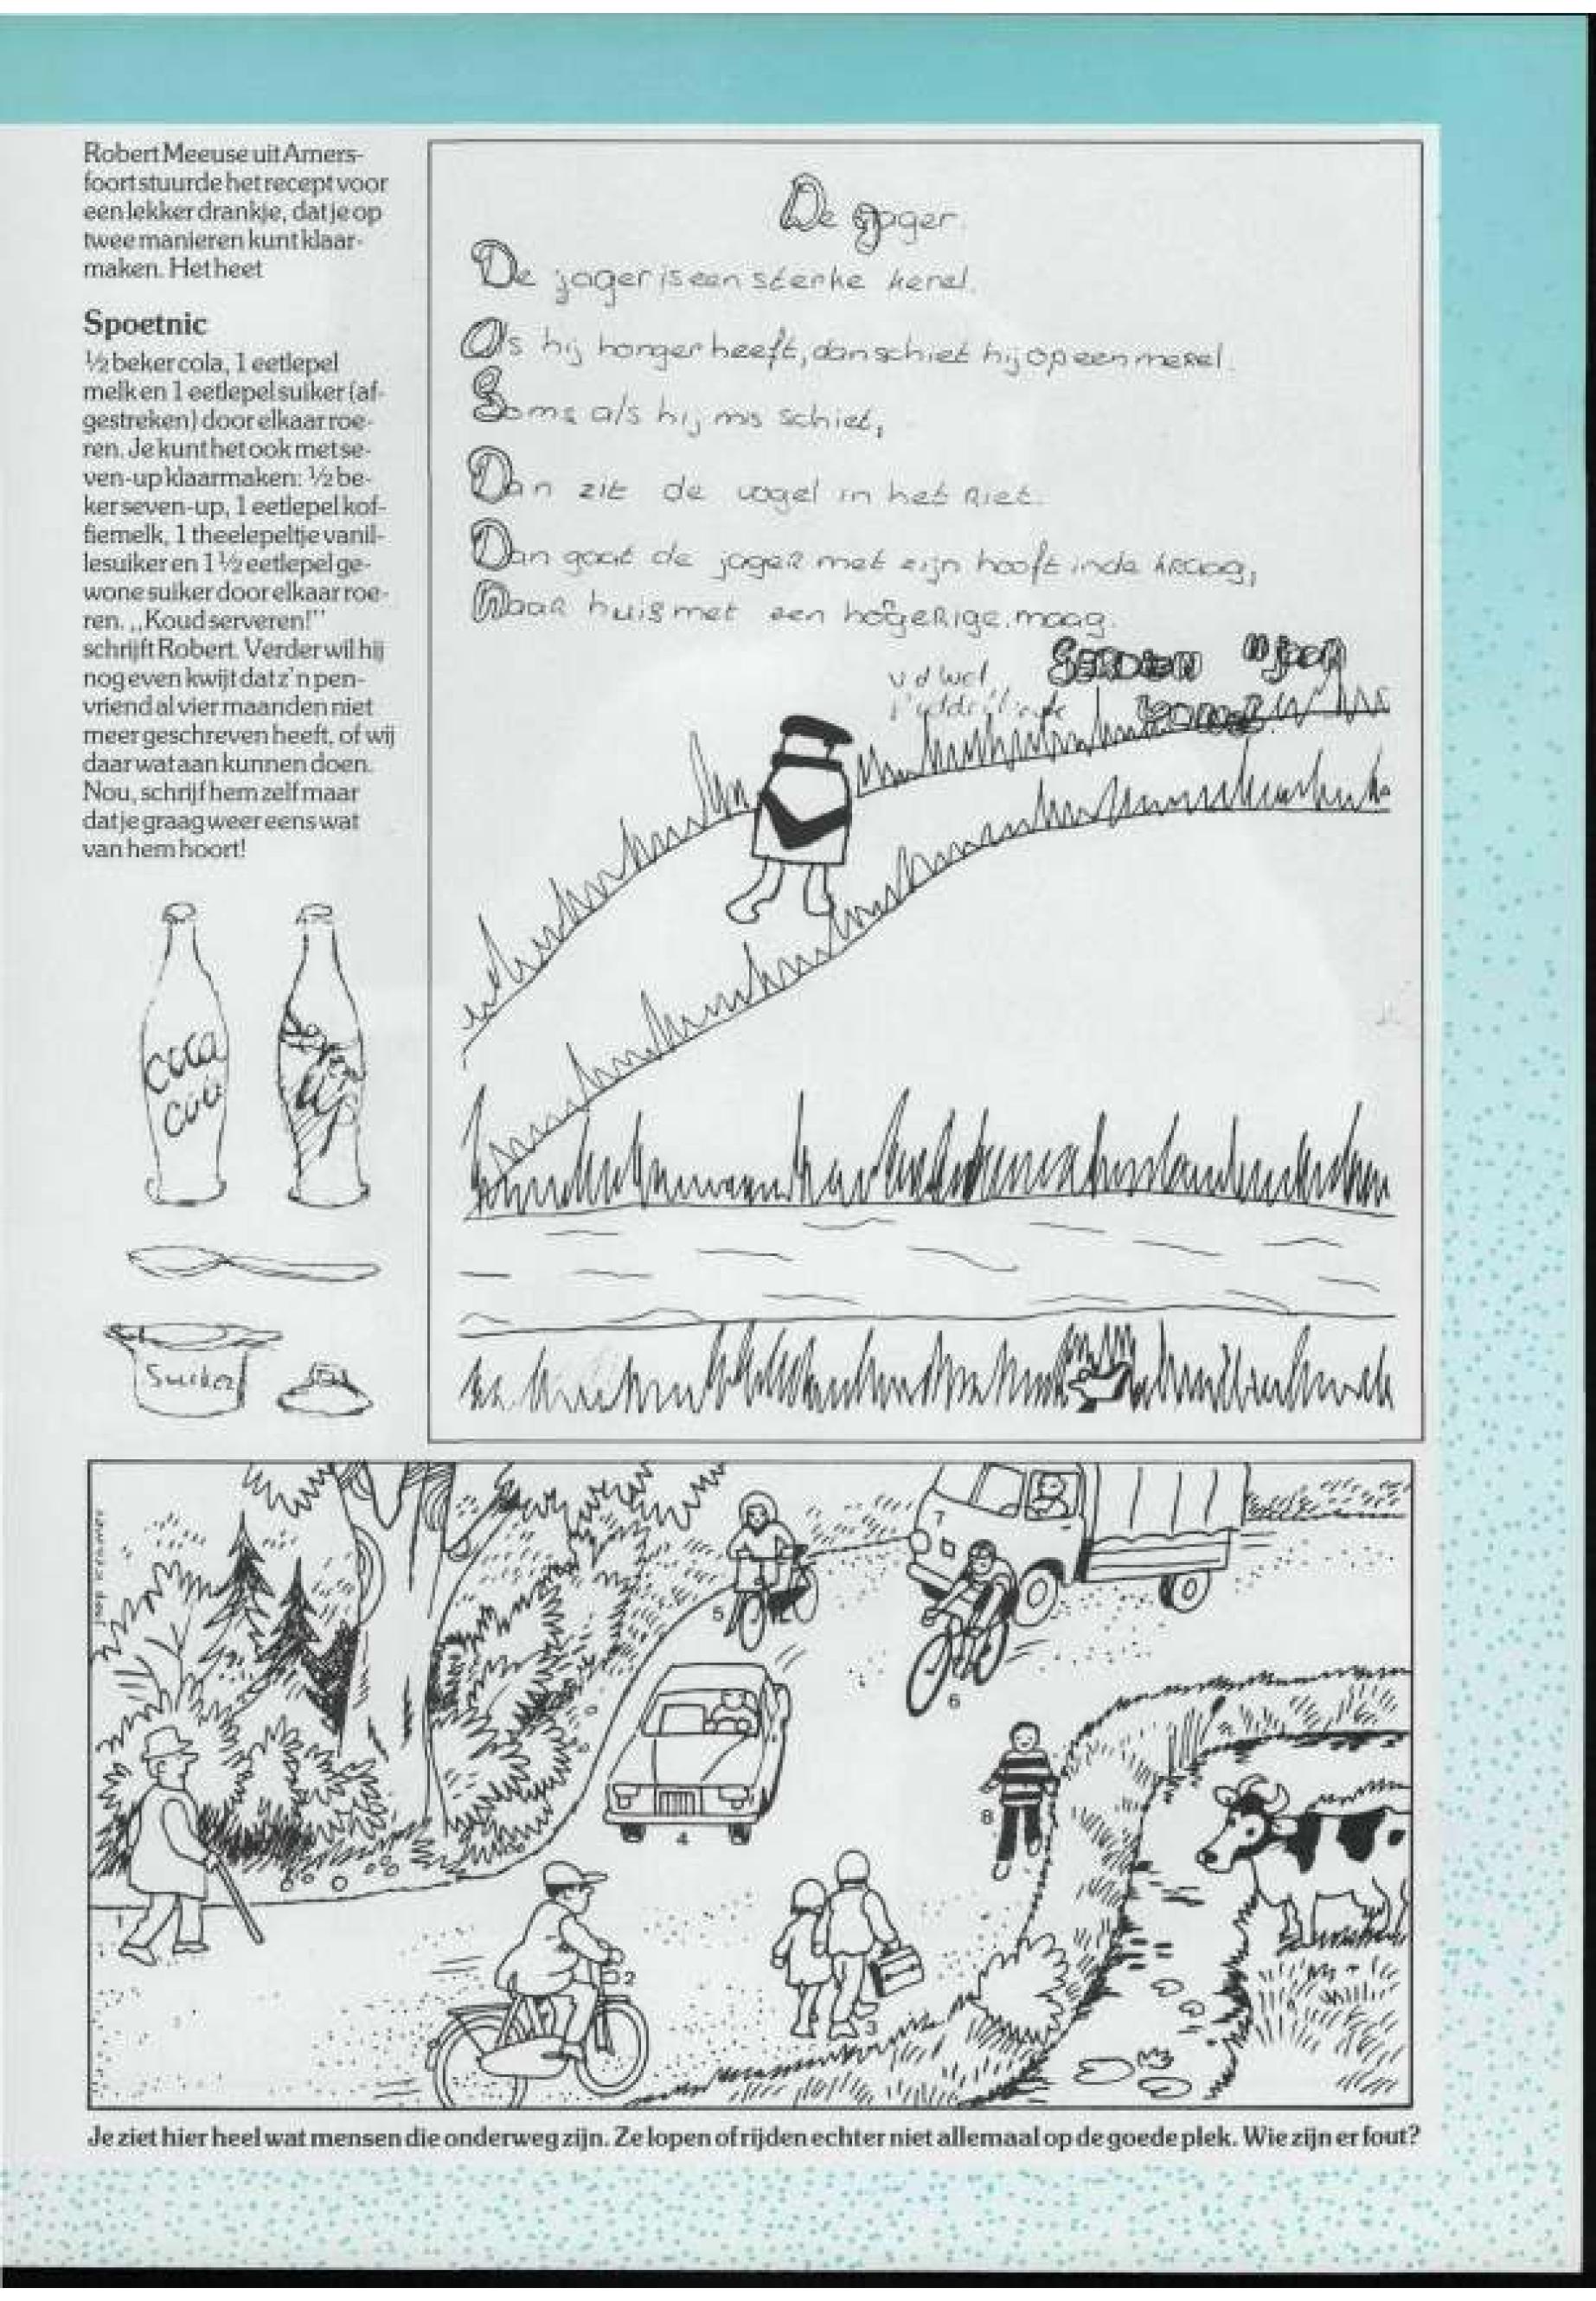 Robert Meeuse uit Amers-
foort stuurde het recept voor
een lekker drankje, dat je op
twee manieren kunt klaar-
maken. Het heet
Spoetnic
½ beker cola, 1 eetlepel
melk en 1 eetlepel suiker (af-
gestreken) door elkaar roe-
ren. Je kunt het ook met se-
ven-up klaarmaken: ½ be-
ker seven-up, 1 eetlepel kof-
fiemelk, 1 theelepeltje vanil-
lesuiker en 1 ½ eetlepel ge-
wone suiker door elkaar roe-
ren. „Koud serveren!”
schrijft Robert. Verder wil hij
nog even kwijt dat z'n pen-
vriend al vier maanden niet
meer geschreven heeft, of wij
daar wat aan kunnen doen.
Nou, schrijf hem zelf maar
dat je graag weer eens wat
van hem hoort!
Suiker
De jager.
De jager is een sterke kerel.
Als hij honger heeft, dan schiet hij op een merel.
Soms als hij mis schiet,
Dan zit de vogel in het riet.
Dan gaat de jager met zijn hooft in de kraag,
Naar huis met een hogerige maag.
joep kramer
1
2
3
4
5
6
7
8
Je ziet hier heel wat mensen die onderweg zijn. Ze lopen of rijden echter niet allemaal op de goede plek. Wie zijn er fout?